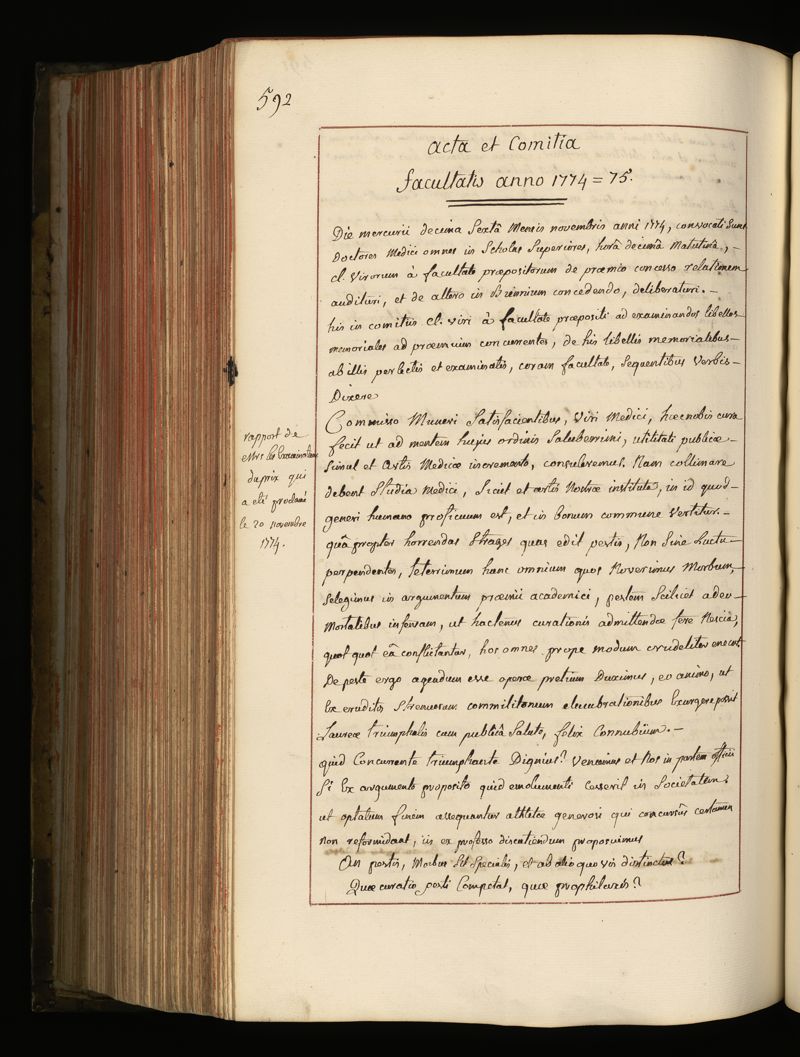 592
acta et Comitia
facultatis anno 1774 = 75.
Die mercurii decima Sextâ Mensis novembris anni 1774, convocati Sunt
Doctores Medici omnes in Scholas Superiores, horâ decimâ Matutinâ, –
cl. Virorum à facultate præpositorum de præmio concesso relationem
audituri, et de altero in Biennium concedendo, deliberaturi. –
his in comitiis cl. viri à facultate præpositi ad examinandos libellos
memoriales ad præmium concurrentes, de his libellis memorialibus –
ab illis perlectis et examinatis, coram facultate, Sequentibus Verbis –
Dixere
Commisso Muneri Satisfacientibus, Viri Medici, hæc nobis cura
fecit ut ad mentem hujus ordinis Saluberrimi, utilitati publicæ –
Simul et Artis Medicæ incremento, consuleremus. Nam collimare
debent Studia Medici, Sicut et artis Nostræ instituta, in id quod –
generi humano proficuum est, et in bonum commune Vertitur. –
quâ propter horrendas Strages quas edit pestis, Non Sine Luctu –
perpendentes, teterrimum hanc omnium quos Noverimus Morbum, –
Selegimus in argumentum præmii academici, pestem Scilicet adeo –
Mortalibus infensam, ut hactenus curationis admittendæ fere Nescia,
quot quot eâ conflictantur, hos omnes prope modum crudeliter enecat
De peste ergo agendum esse operæ pretium Duximus, eo animo, ut
Ex eruditis Strenuorum commilitonum elucubrationibus Exurgere possit
Laureæ triumphalis cum publicâ Salute, felix Connubium. –
quid Concurrente triumphante Dignius? Veniamus et Nos in partem officii
Si Ex argumento proposito quid emolumenti Caserit in Societatem;
ut optatum finem assequantur athletæ generosi qui concursûs certamen
non reformidant, iis ex professo discutiendum proposuimus
An pestis, Morbus Sit Specialis, et ab alio quo vis distinctus?
Quæ curatio pesti Competat, quæ prophilaxis?
rapport de
Mrs les Examinateurs
du prix qui
a eté proclamé
le 20 novembre
1774.